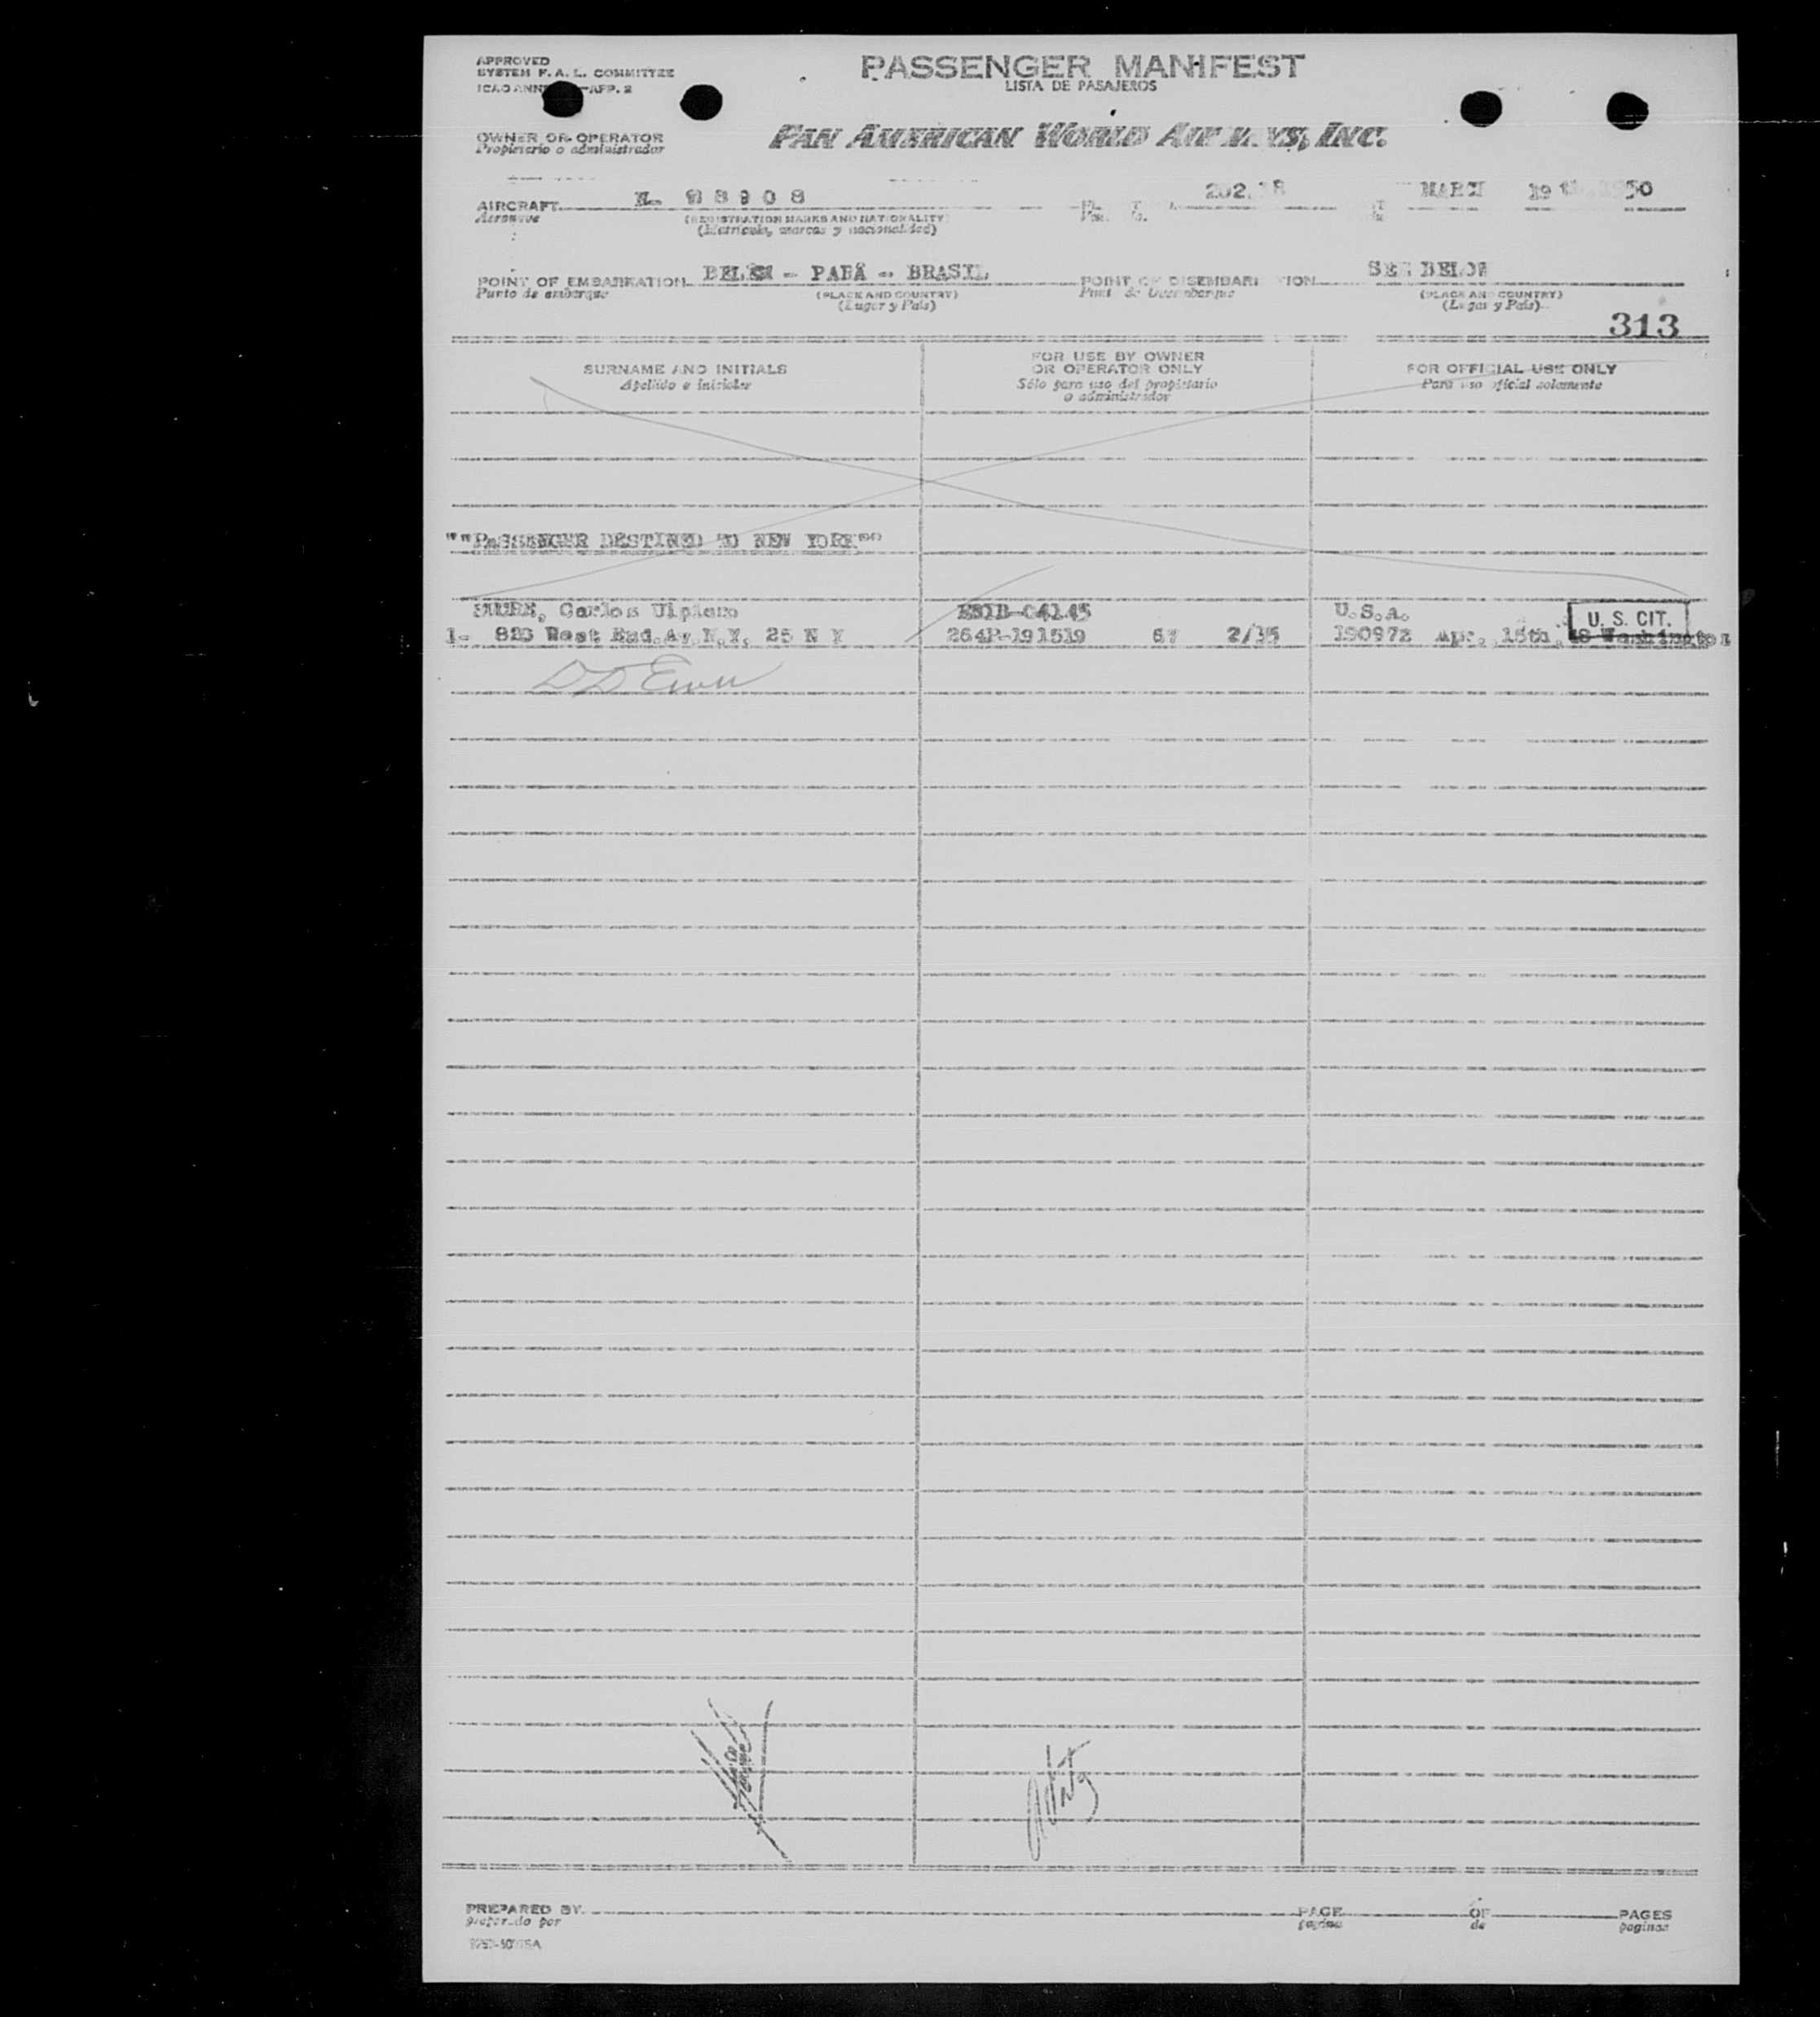 APPROVED
SYSTEM F. A. L. COMMITTEE
ICAO ANNE APP. 2
PASSENGER MANIFEST
LISTA DE PASAJEROS
OWNER OR OPERATOR
Propietario o administrador
PAN AMERICAN WORLD AIRWAYS, INC.
AIRCRAFT N- 88908 202 MARCH 19 1950
Aeronave (REGISTRATION MARKS AND NATIONALITY)
(Matrícula, marcas y nacionalidad)
POINT OF EMBARKATION BELEM - PARÁ - BRASIL POINT OF DISEMBARKATION SEE BELOW
Punto de embarque (PLACE AND COUNTRY) Punto de Desembarque (PLACE AND COUNTRY)
(Lugar y País) (Lugar y País)
313
SURNAME AND INITIALS
Apellido e iniciales
FOR USE BY OWNER
OR OPERATOR ONLY
Sólo para uso del propietario
o administrador
FOR OFFICIAL USE ONLY
Para uso oficial solamente
""PASSENGER DESTINED TO NEW YORK""
Carlos U.S.A. U. S. CIT.
1- West End Av N.Y. 25 N Y 264P-191519 67 2/15 Apr. 15th, 48 Washington
PREPARED BY PAGE OF PAGES
preparado por página de paginas